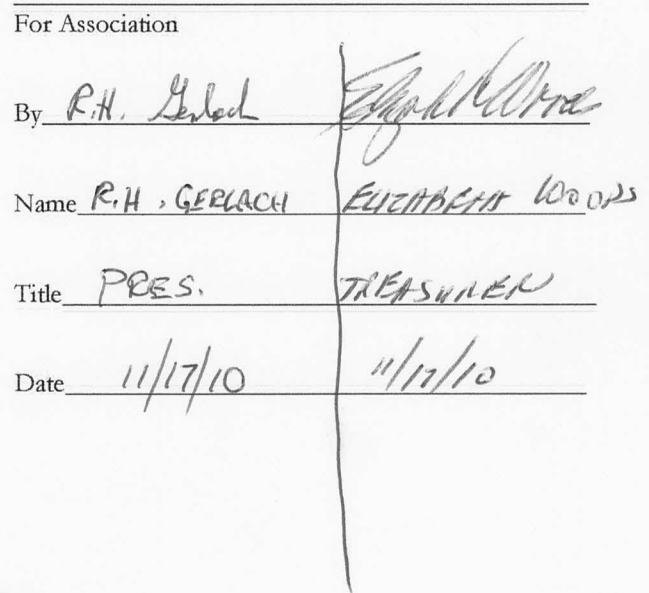 For Association
By R.H. Gerlach Elizabeth Woods
Name R.H. GERLACH ELIZABETH WOODS
Title PRES. TREASURER
Date 11/17/10 11/17/10